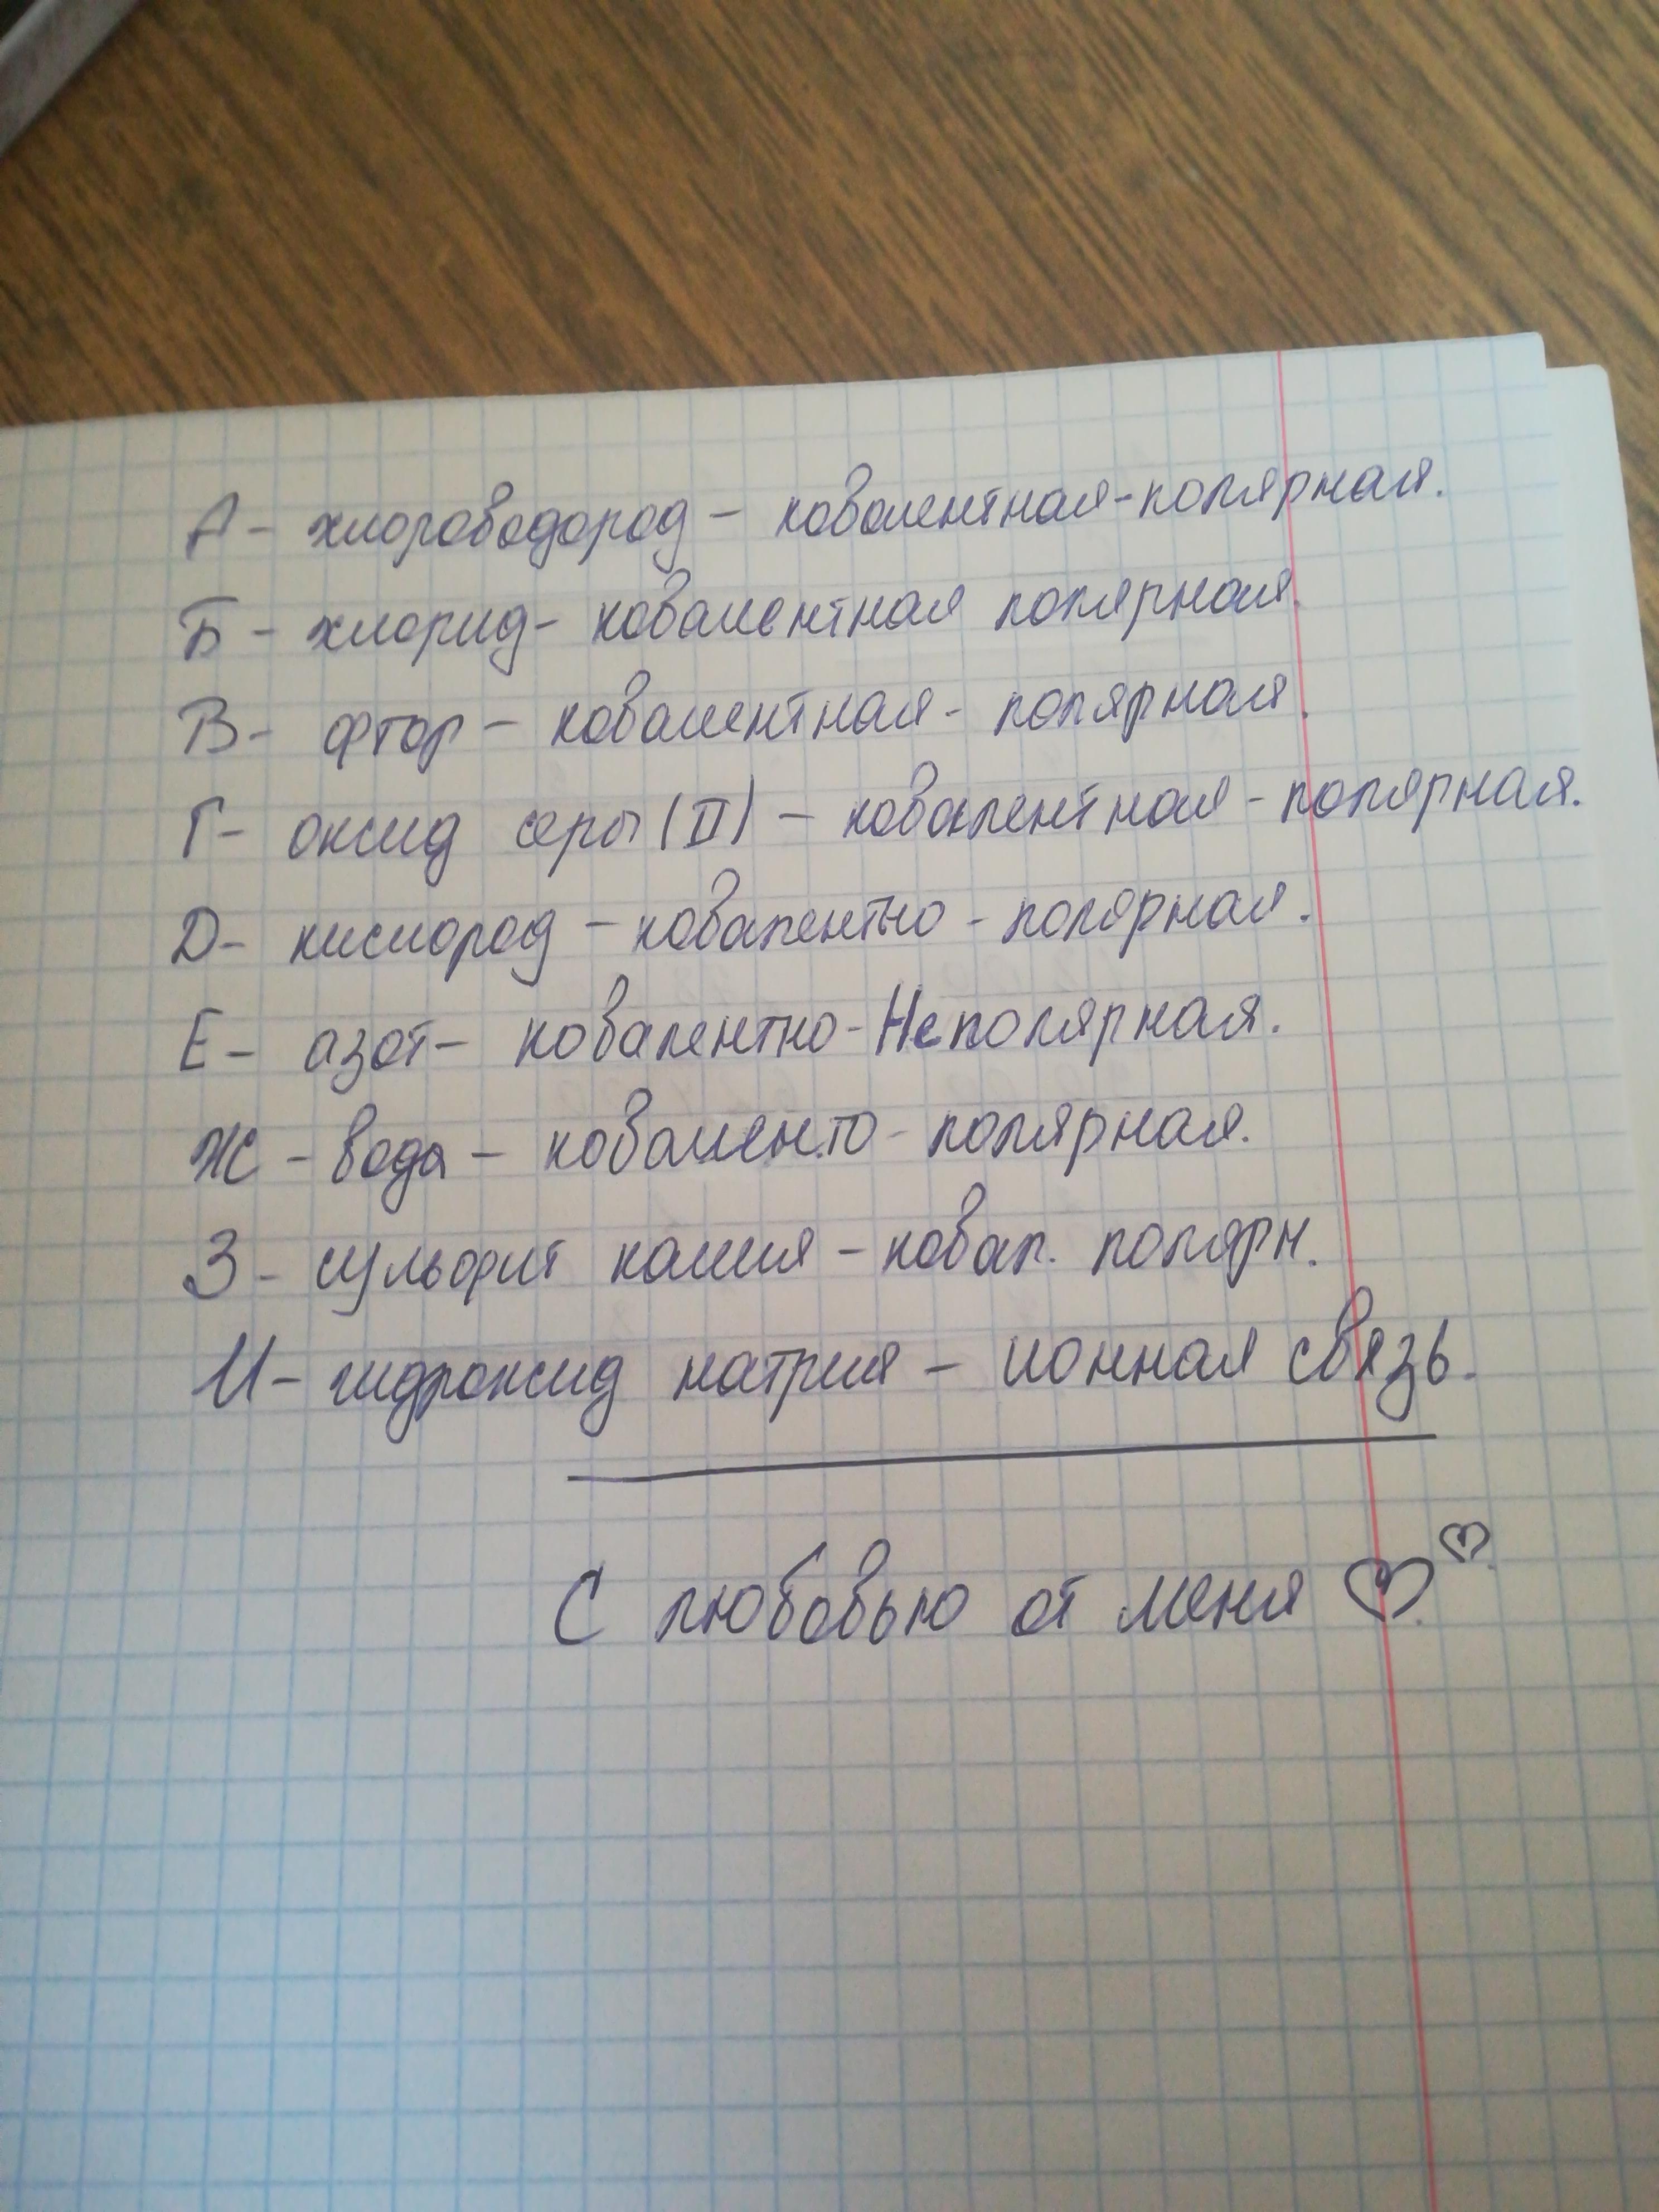 А - хлороводород - ковалентная-полярная.
Б - хлорид - ковалентная полярная.
В - фтор - ковалентная - полярная.
Г - оксид серы (II) - ковалентная - полярная.
Д - кислород - ковалентно - полярная.
Е - азот - ковалентно - Неполярная.
Ж - вода - коваленто - полярная.
З - сульфит калия - ковал. полярн.
И - гидроксид натрия - ионная связь.
С любовью от меня ♡♡